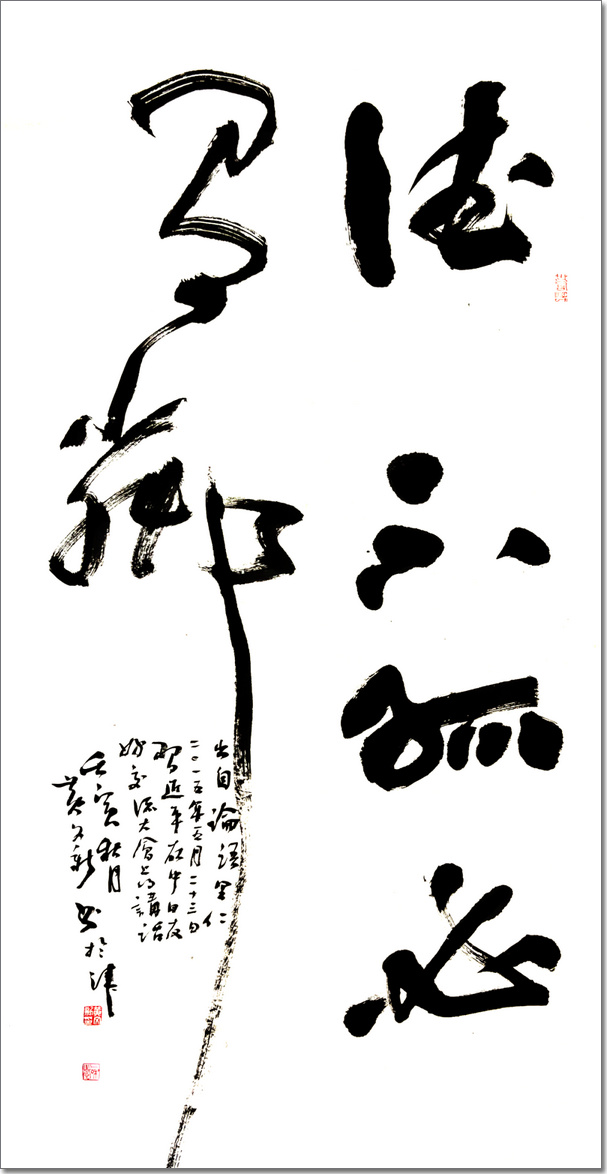 德不孤必
有鄰
出自論語里仁
二〇一五年五月二十三日
習近平在中日友
好交流大會上的講話
壬寅秋月
黄文新書於津